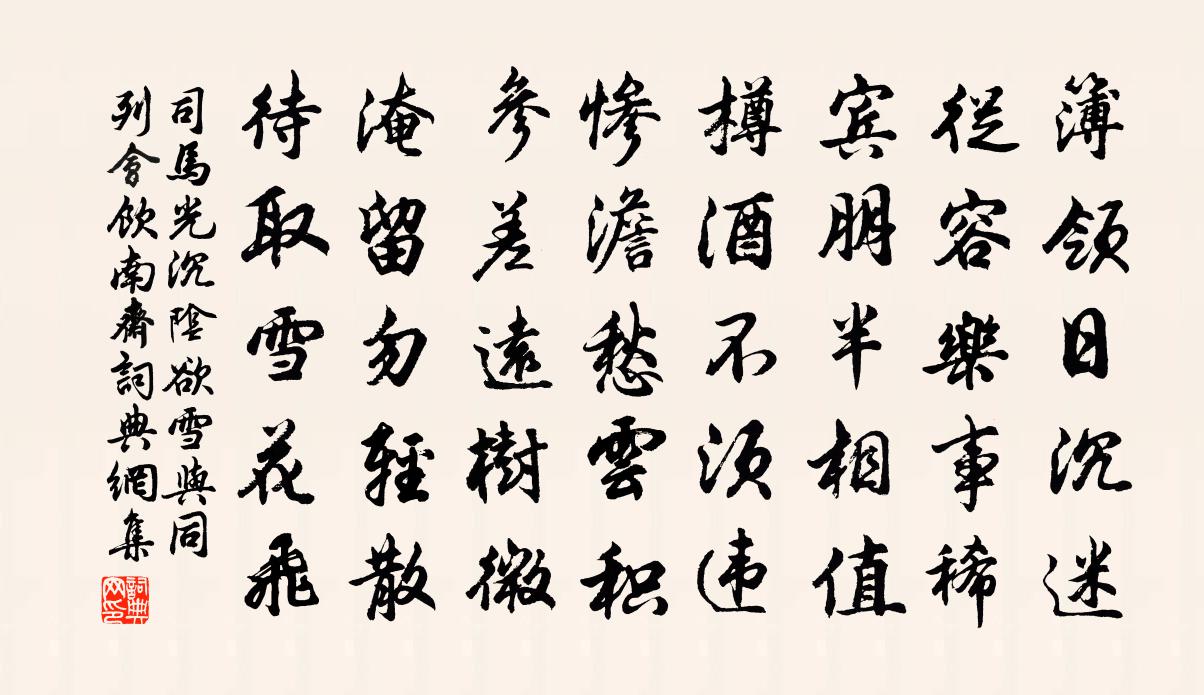 簿领日沉迷
从容樂事稀
宾朋半相值
樽酒不须违
惨澹愁雲积
参差遠樹微
淹留勿轻散
待取雪花飛
司馬光沉陰欲雪與同
列會飲南齋詞典網集
詞典网印